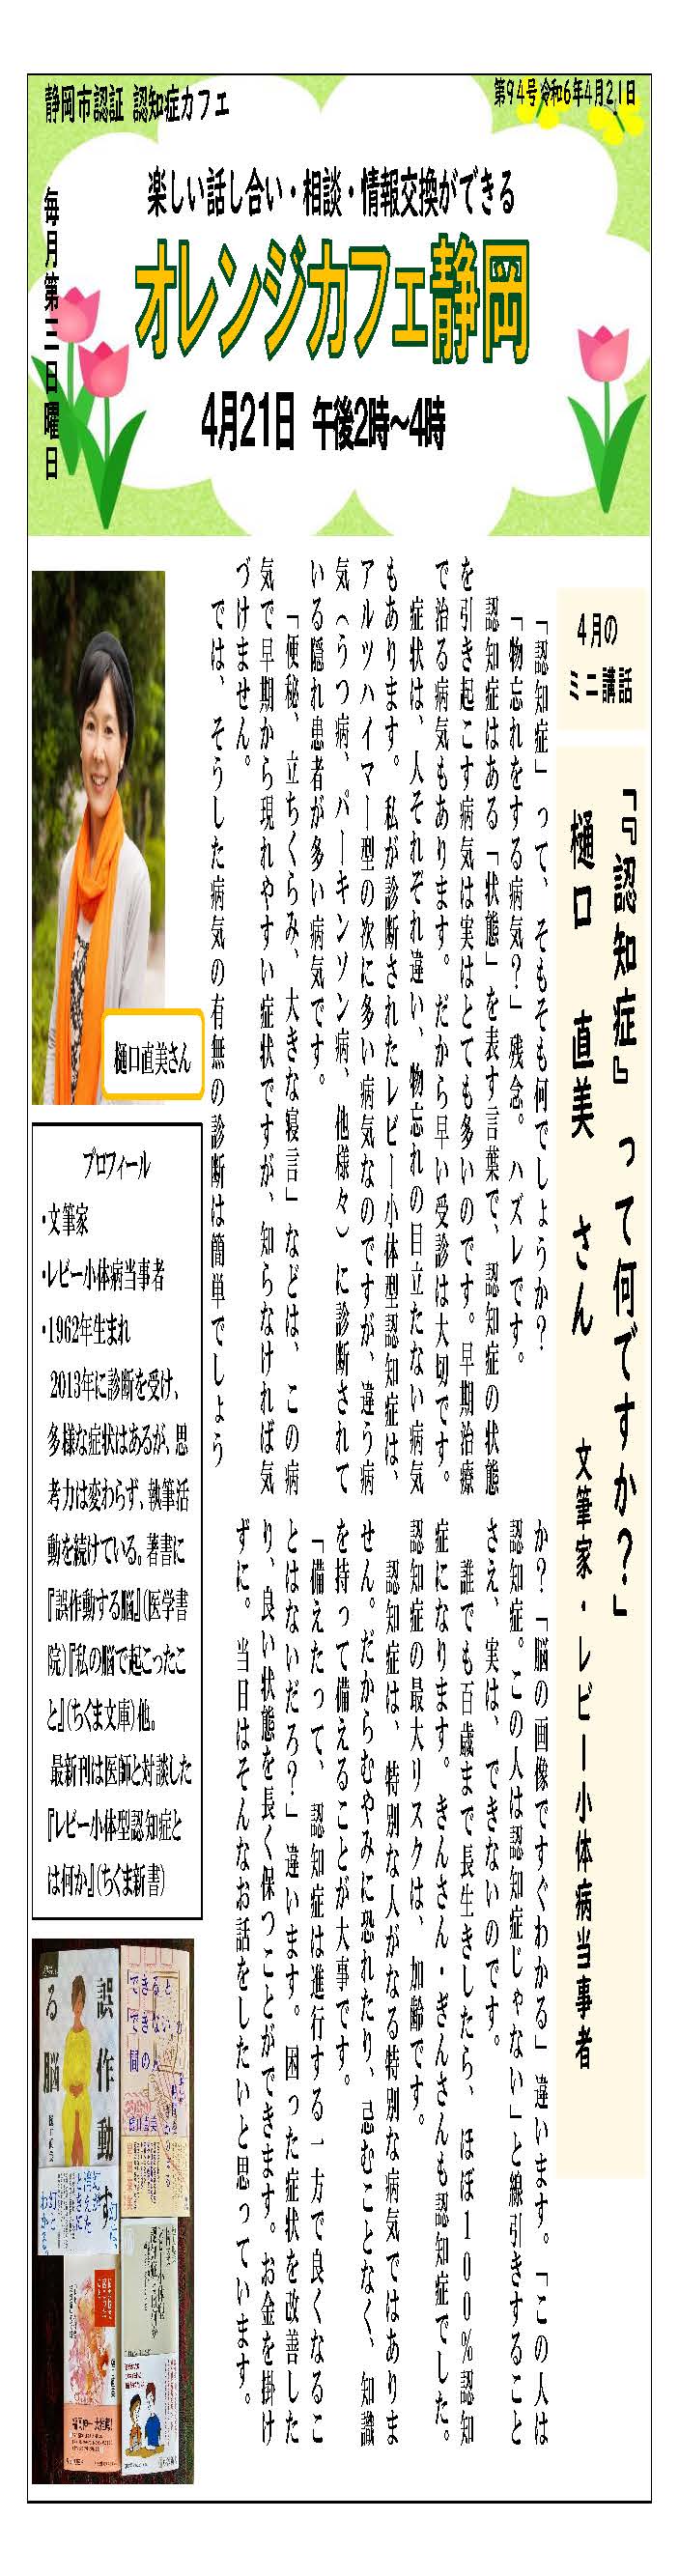 静岡市認証 認知症カフェ
第94号 令和6年4月21日
毎月第三日曜日
楽しい話し合い・相談・情報交換ができる
オレンジカフェ静岡
4月21日 午後2時~4時
4月の
ミニ講話
「『認知症』って何ですか?」
樋口 直美 さん 文筆家・レビー小体病当事者
「認知症」って、そもそも何でしょうか?
「物忘れをする病気?」残念。ハズレです。
認知症はある「状態」を表す言葉で、認知症の状態
を引き起こす病気は実はとても多いのです。早期治療
で治る病気もあります。だから早い受診は大切です。
症状は、人それぞれ違い、物忘れの目立たない病気
もあります。私が診断されたレビー小体型認知症は、
アルツハイマー型の次に多い病気なのですが、違う病
気(うつ病、パーキンソン病、他様々)に診断されて
いる隠れ患者が多い病気です。
「便秘、立ちくらみ、大きな寝言」などは、この病
気で早期から現れやすい症状ですが、知らなければ気
づけません。
では、そうした病気の有無の診断は簡単でしょう
か?「脳の画像ですぐわかる」違います。「この人は
認知症。この人は認知症じゃない」と線引きすること
さえ、実は、できないのです。
誰でも百歳まで長生きしたら、ほぼ100%認知
症になります。きんさん・ぎんさんも認知症でした。
認知症の最大リスクは、加齢です。
認知症は、特別な人がなる特別な病気ではありま
せん。だからむやみに恐れたり、忌むことなく、知識
を持って備えることが大事です。
「備えたって、認知症は進行する一方で良くなるこ
とはないだろ?」違います。困った症状を改善した
り、良い状態を長く保つことができます。お金を掛け
ずに。当日はそんなお話をしたいと思っています。
樋口直美さん
プロフィール
・文筆家
・レビー小体病当事者
・1962年生まれ
2013年に診断を受け、
多様な症状はあるが、思
考力は変わらず、執筆活
動を続けている。著書に
『誤作動する脳』(医学書
院)『私の脳で起こったこ
と』(ちくま文庫)他。
最新刊は医師と対談した
『レビー小体型認知症と
は何か』(ちくま新書)
誤作動す
る脳
樋口直美
「できる」と
「できない」の
間の人